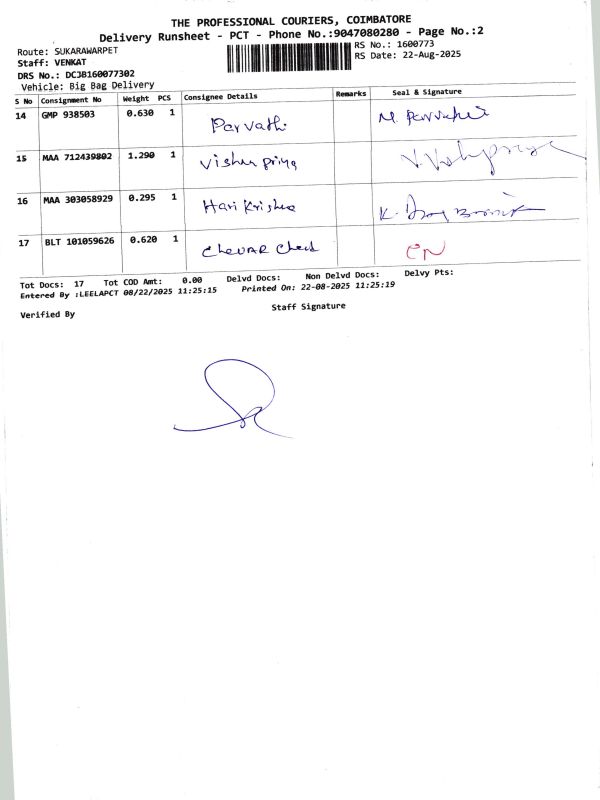 THE PROFESSIONAL COURIERS, COIMBATORE
Delivery Runsheet - PCT - Phone No.:9047080280 - Page No.:2
Route: SUKARAWARPET
RS No.: 1600773
Staff: VENKAT
RS Date: 22-Aug-2025
DRS No.: DCJB160077302
Vehicle: Big Bag Delivery
S No Consignment No Weight PCS Consignee Details Remarks Seal & Signature
14 GMP 938503 0.630 1 Parvathi M. Parvathi
15 MAA 712439802 1.290 1 Vishnu priya V. Vishnupriya
16 MAA 303058929 0.295 1 Hari Krishna K.
17 BLT 101059626 0.620 1 CN
Tot Docs: 17 Tot COD Amt: 0.00 Delvd Docs: Non Delvd Docs: Delvy Pts:
Entered By :LEELAPCT 08/22/2025 11:25:15 Printed On: 22-08-2025 11:25:19
Verified By Staff Signature